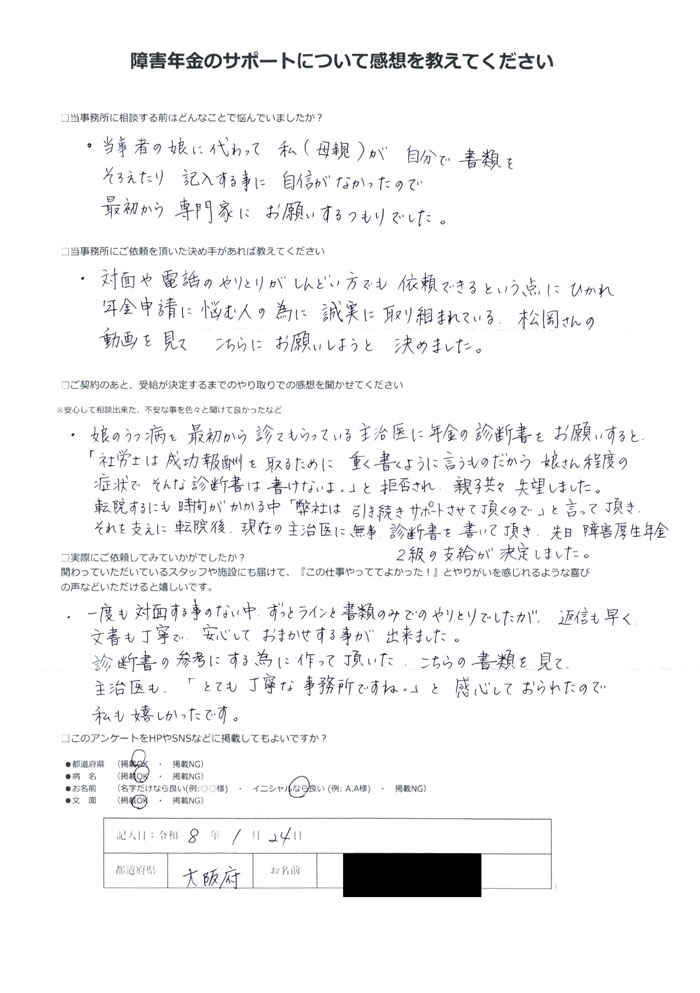 障害年金のサポートについて感想を教えてください
□当事務所に相談する前はどんなことで悩んでいましたか？
・当事者の娘に代わって 私(母親)が 自分で 書類を
そろえたり 記入する事に 自信がなかったので
最初から 専門家に お願いするつもりでした。
□当事務所にご依頼を頂いた決め手があれば教えてください
・対面や電話のやりとりがしんどい方でも 依頼できるという点に ひかれ
年金申請に悩む人の為に 誠実に取り組まれている、松岡さんの
動画を見て こちらに お願いしようと 決めました。
□ご契約のあと、受給が決定するまでのやり取りでの感想を聞かせてください
※安心して相談出来た、不安な事を色々と聞けて良かったなど
・娘のうつ病を 最初から 診てもらっている主治医に年金の診断書を お願いすると、
「社労士は成功報酬を取るために 重く書くように言うものだから 娘さん程度の
症状で そんな診断書は 書けないよ。」と 拒否され、親子共々 失望しました。
転院するにも 時間がかかる中「弊社は 引き続きサポートさせて頂くので」と言って頂き、
それを支えに 転院後、現在の主治医に無事 診断書を 書いて頂き、先日 障害厚生年金
2級の支給が決定しました。
□実際にご依頼してみていかがでしたか？
関わっていただいているスタッフや施設にも届けて、『この仕事やっててよかった！』とやりがいを感じれるような喜び
の声などいただけると嬉しいです。
・一度も 対面する事のない中、ずっとラインと書類のみでのやりとりでしたが、返信も早く、
文書も丁寧で、安心して おまかせする事が 出来ました。
診断書の参考にする為に作って頂いた、こちらの書類を見て、
主治医も、「とても 丁寧な事務所ですね。」と 感心しておられたので
私も嬉しかったです。
□このアンケートをHPやSNSなどに掲載してもよいですか？
●都道府県 （掲載OK ・ 掲載NG）
●病 名 （掲載OK ・ 掲載NG）
●お名前 （名字だけなら良い(例:○○様) ・ イニシャルなら良い (例: A.A様) ・ 掲載NG）
●文 面 （掲載OK ・ 掲載NG）
記入日：令和 8 年 1 月 24日
都道府県 大阪府 お名前